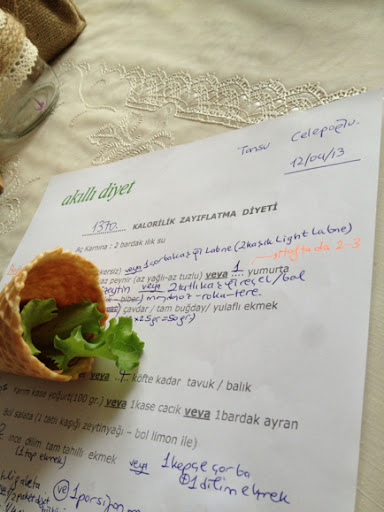 Tansu Celepoğlu.
12/04/13
akıllı diyet
1370 KALORİLİK ZAYIFLATMA DİYETİ
Aç Karnına : 2 bardak ılık su
haftada 2-3
kersiz) veya 1 çorba kaşığı Labne (2 kaşık Light Labne)
az peynir (az yağlı-az tuzlu) veya 1 yumurta
zeytin veya 2 tatlı kaşığı reçel/bal
biber) maydanoz-roka-tere.
çavdar / tam buğday/ yulaflı ekmek
x25gr=50gr)
veya 4 köfte kadar tavuk / balık
yarım kase yoğurt(100 gr.) veya 1kase cacık veya 1bardak ayran
Bol salata (1 tatlı kaşığı zeytinyağı – bol limon ile)
2 ince dilim tam tahıllı ekmek veya 1 kepçe çorba
+1 dilim ekmek
ve 1 porsiyon